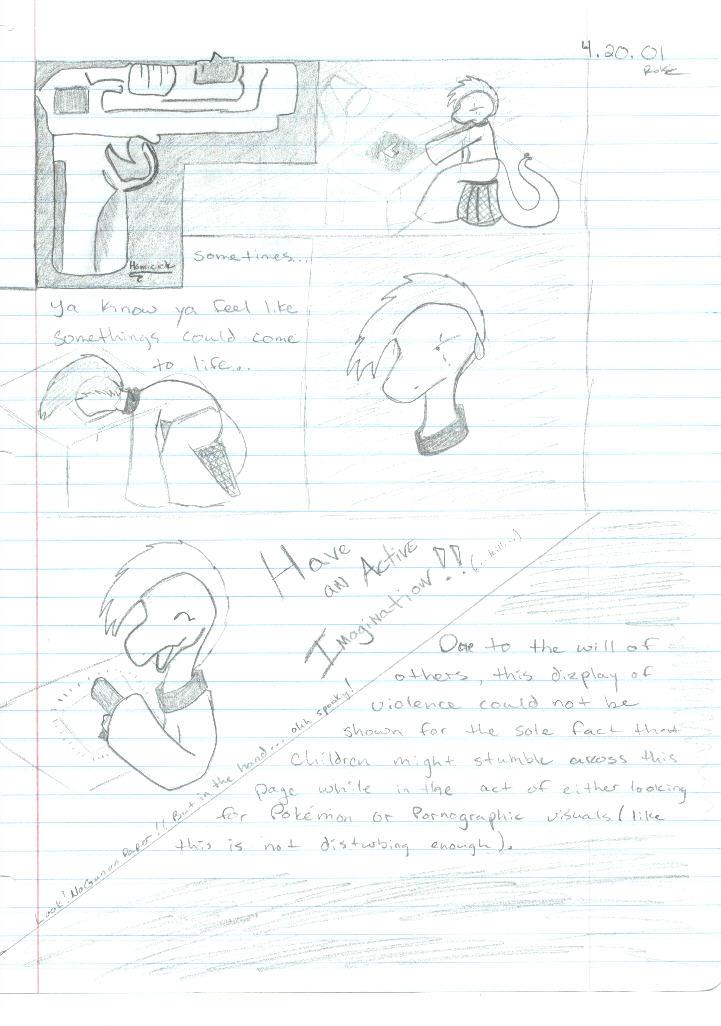 4.20.01
Homicide
sometimes...
Ya know ya feel like
somethings could come
to life...
Have
an Active
Imagination!! (...kill...)
Look! No Gun on Paper!! But in the hand... ohh spooky!
Due to the will of
others, this dizplay of
violence could not be
shown for the sole fact that
Children might stumble across this
page while in the act of either looking
for Pokémon or Pornographic visuals (like
this is not disturbing enough).